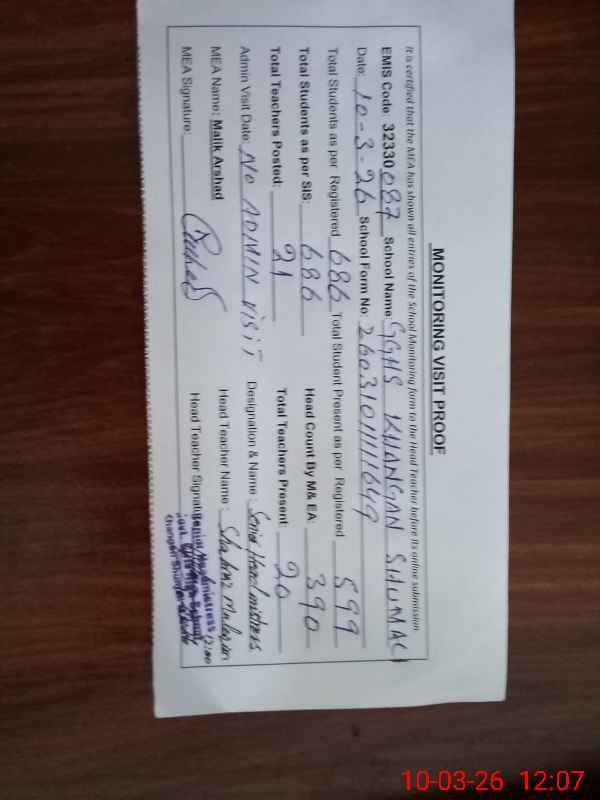 MONITORING VISIT PROOF
It is certified that the MEA has shown all entries of the School Monitoring form to the Head Teacher before its online submission
EMIS Code 32330087 School Name GGHS KHANGAN SHUMALI
Date: 10-3-26 School Form No: 2603101111649
Total Students as per Registered 686 Total Student Present as per Registered 599
Total Students as per SIS: 686 Head Count By M& EA: 390
Total Teachers Posted: 21 Total Teachers Present: 20
Admin Visit Date NO ADMIN VISIT Designation & Name: Senior Headmistress
MEA Name: Malik Arshad Head Teacher Name:
MEA Signature: Head Teacher Signature
Senior Headmistress
Govt. Girls High School
10-03-26 12:07